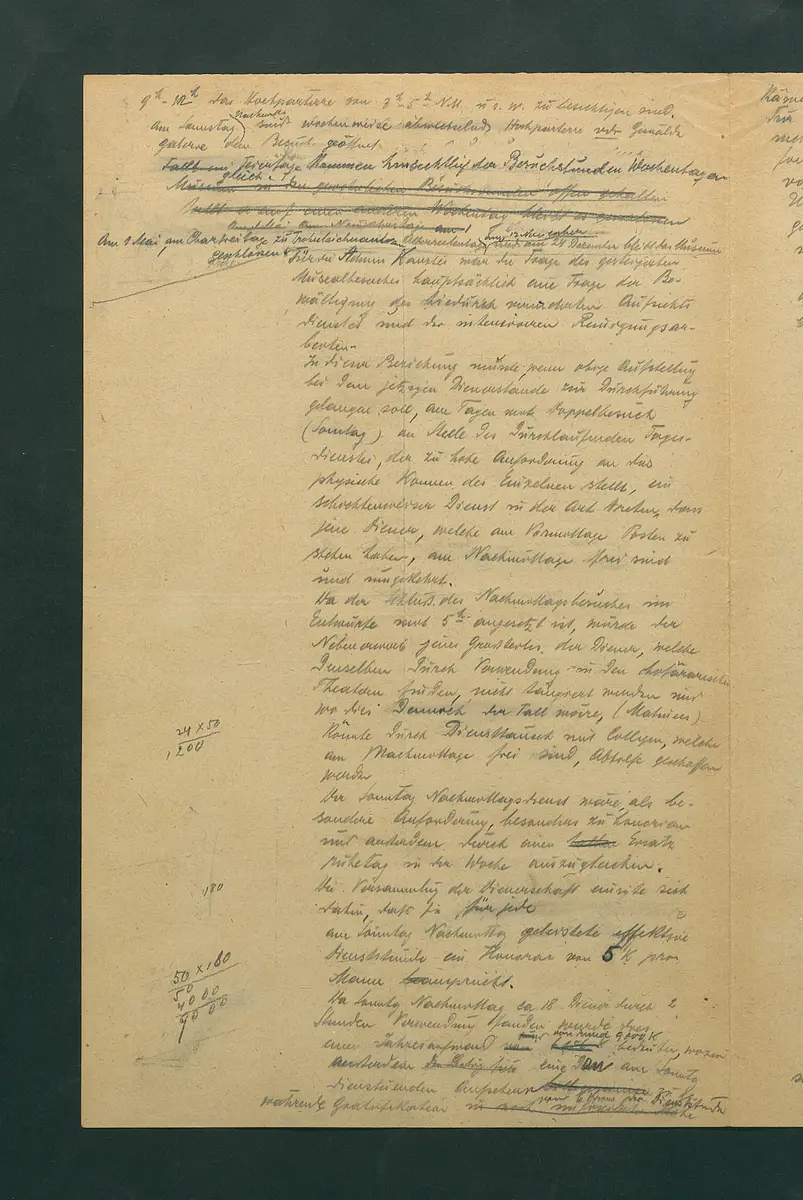 9h - 12h das Hochparterre von 3h - 5h N.M. u. s. w. zu besichtigen sind.
Am Samstag Nachmittg sind wochenweise abwechselnd Hochparterre und Gemälde
galerie dem Besuch geöffnet
Feiertage kommen hinsichtlich der Besuchstunden Wochentagen
gleich.
Museum in den gewöhnlichen Besuchsstunden offen gehalten
fällt er auf einen anderen Wochentag bleibt es geschlossen
Am 1 Mai, am Charfreitag, zu Frohnleichnam, Allerseelentag, und am 24 December bleibt das Museum
geschlossen
Für die Admin Kanzlei war die Frage des gesteigerten
Musealbesuches hauptsächlich eine Frage der Be-
wältigung des hiedurch vermehrten Aufsichts
dienstes und der intensiveren Reinigungsar-
beiten.
In dieser Beziehung müsste, wenn obige Aufstellung
bei dem jetzigen Dienerstande zur Durchführung
gelangen soll, an Tagen mit Doppelbesuch
(Sonntag) an Stelle des durchlaufenden Tages-
dienstes, der zu hohe Anforderung an das
physische Können des Einzelnen stellt, ein
schichtenweiser Dienst in der Art treten, dass
jene Diener, welche am Vormittage Posten zu
stehen haben, am Nachmittage frei sind
und umgekehrt.
Da der Schluß des Nachmittagsbesuches im
Entwurfe mit 5h angesetzt ist, würde der
Nebenerwerb jenes Großteiles der Diener, welche
denselben durch Verwendung in den hofärarischen
Theatern finden, nicht tangiert werden und
wo dies dennoch der Fall wäre, (Matinées)
könnte durch Diensttausch mit Collegen, welche
am Nachmittage frei sind, Abhilfe geschaffen
werden
Der Sonntag Nachmittagsdienst wäre, als be-
sondere Anforderung, besonders zu honorieren
und ausserdem durch einen Ersatz
ruhetag in der Woche auszugleichen.
Die Versammlung der Dienerschaft einigte sich
dahin, dass sie für jede
am Sonntag Nachmittag geleistete effektive
Dienststunde ein Honorar von 5 K pro
Mann beansprucht.
Da Sonntag Nachmittag ca 18 Diener durch 2
Stunden Verwendung fänden würde dies
einen Jahresaufwand von rund 9000 K bedeuten, wozu
ausserdem eine den am Sonntag
diensttuenden Aufsehern zu ge
währende Gratifikation von 6 Kronen pro Dienststunde
24 x 50
1200
180
50 x 180
50
4000
9000